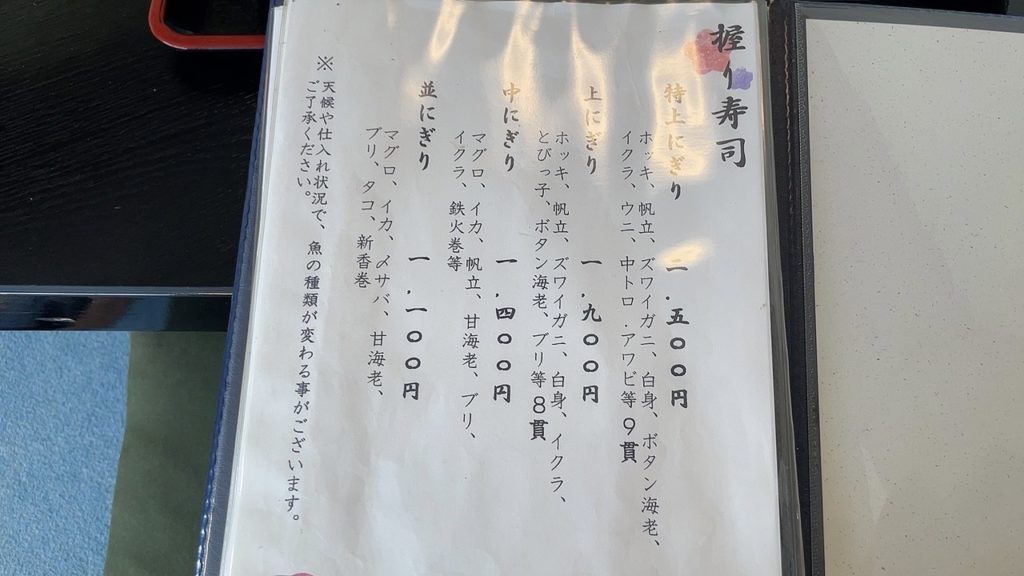 握り寿司
特上にぎり 二.五〇〇円
ホッキ、帆立、ズワイガニ、白身、ボタン海老、
イクラ、ウニ、中トロ.アワビ等9貫
上にぎり 一.九〇〇円
ホッキ、帆立、ズワイガニ、白身、イクラ、
とびっ子、ボタン海老、ブリ等8貫
中にぎり 一.四〇〇円
マグロ、イカ、帆立、甘海老、ブリ、
イクラ、鉄火巻等
並にぎり 一.一〇〇円
マグロ、イカ、〆サバ、甘海老、
ブリ、タコ、新香巻
※天候や仕入れ状況で、魚の種類が変わる事がございます。
ご了承ください。